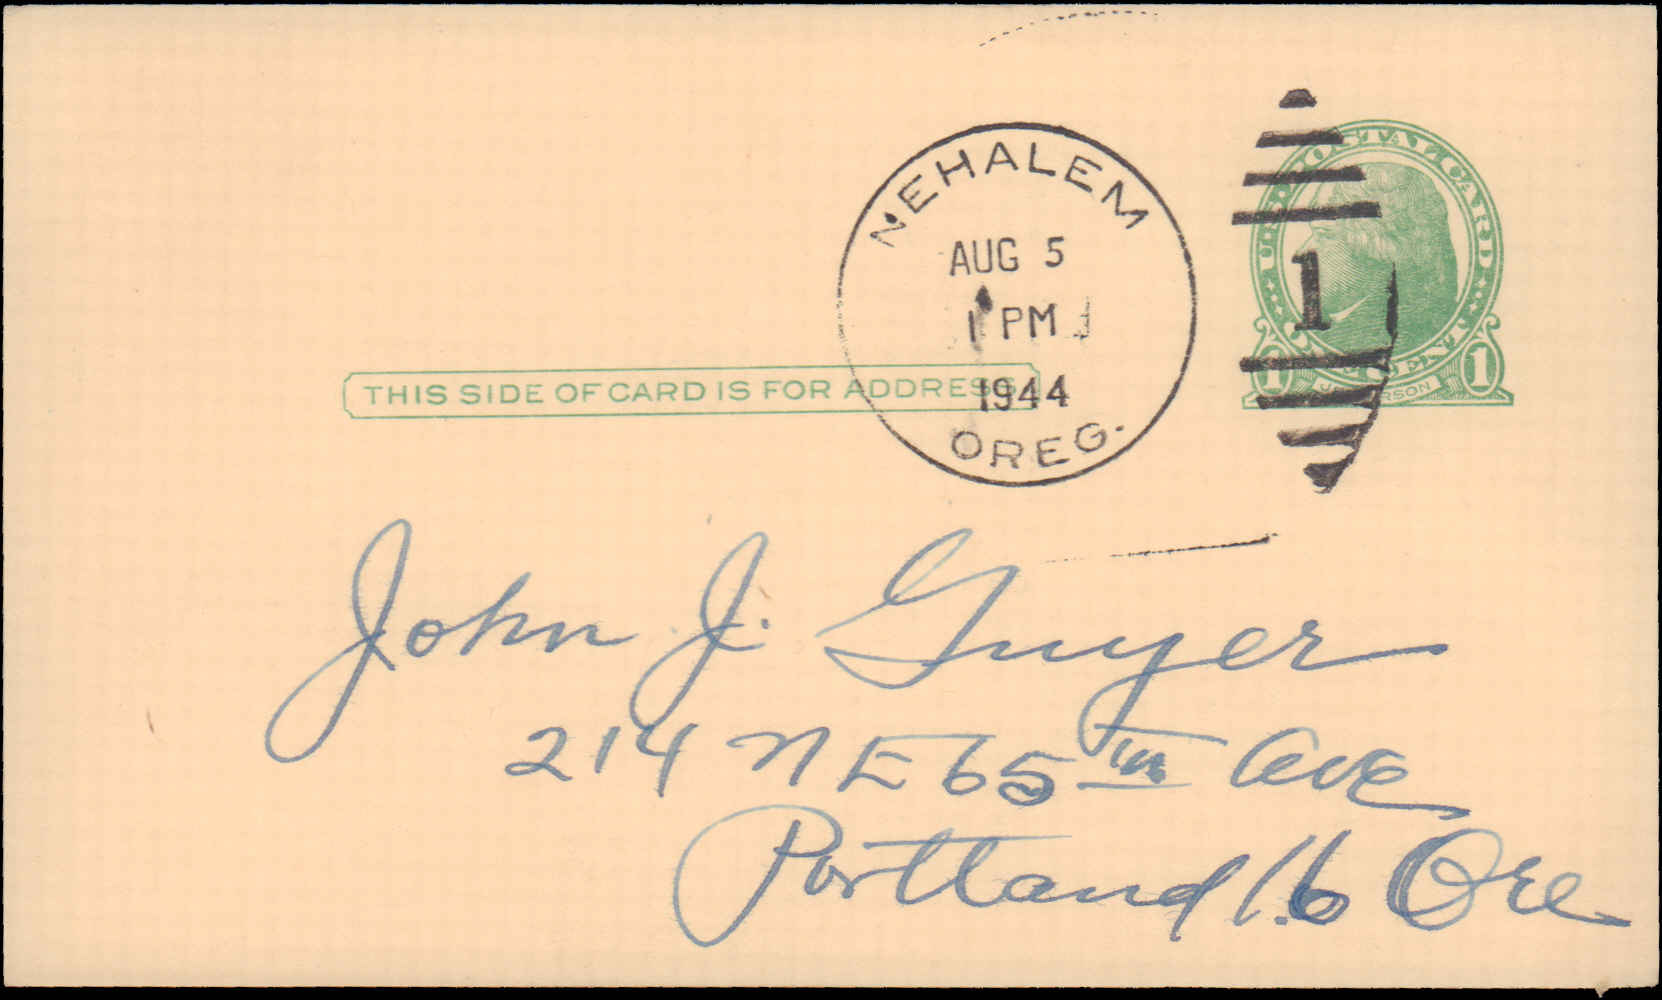 NEHALEM
AUG 5
1 PM
1944
OREG.
U.S. POSTAL CARD
ONE CENT
1 1
JEFFERSON
1
THIS SIDE OF CARD IS FOR ADDRESS
John J. Guyer
214 NE 65th Ave
Portland 16 Ore